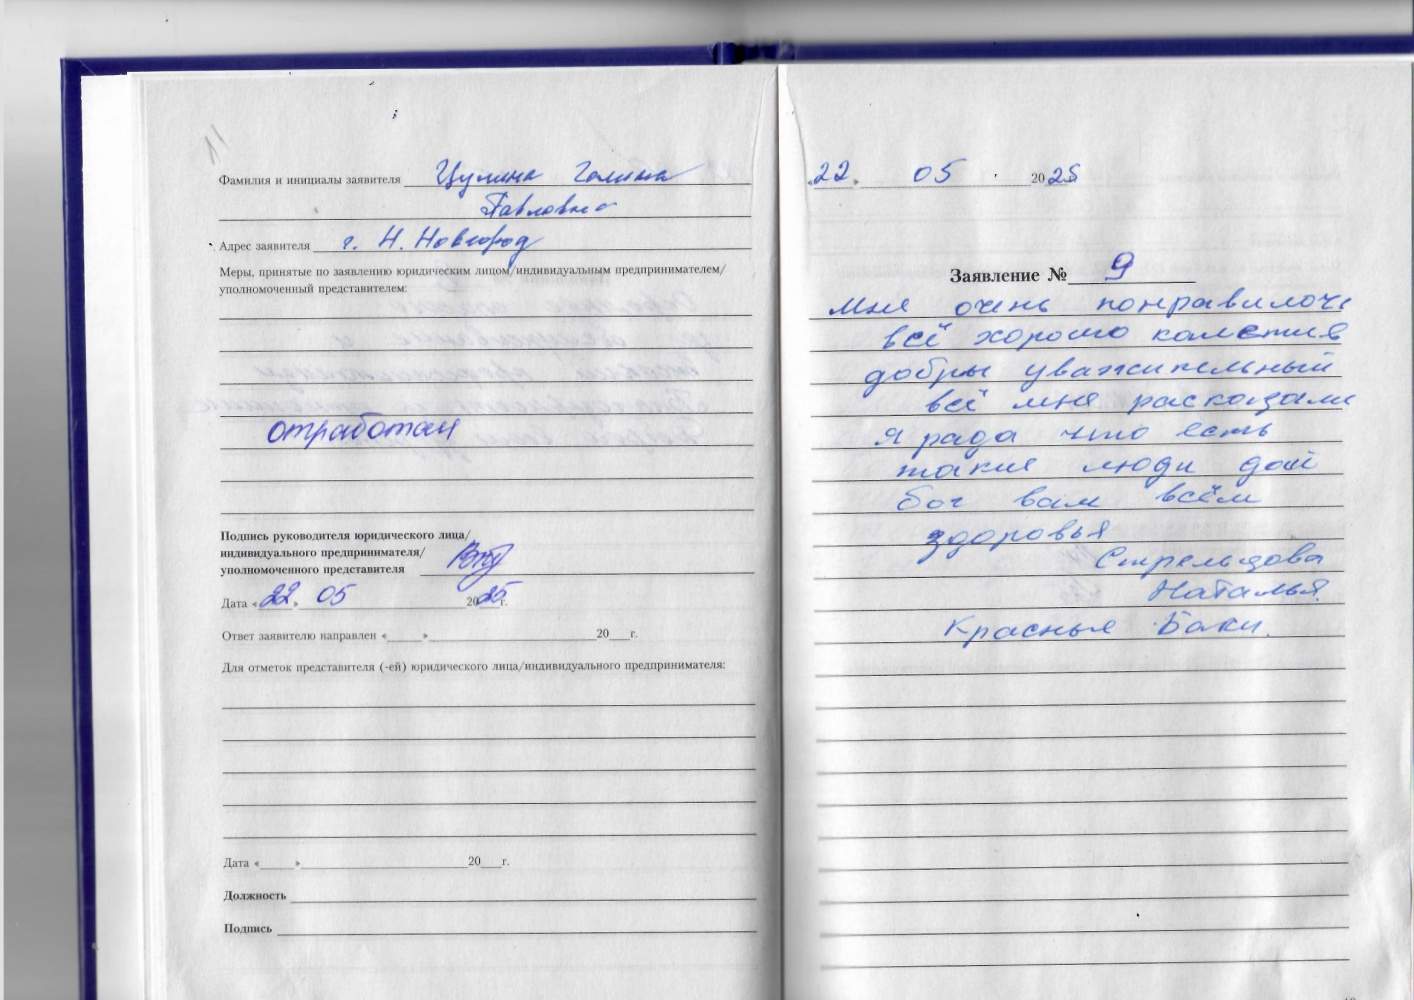 11
Фамилия и инициалы заявителя Цулина Галина
Павловна
Адрес заявителя г. Н. Новгород
Меры, принятые по заявлению юридическим лицом/индивидуальным предпринимателем/
уполномоченный представителем:
отработан
Подпись руководителя юридического лица/
индивидуального предпринимателя/
уполномоченного представителя
Дата «22» 05 2025 г.
Ответ заявителю направлен «___» ___ 20___г.
Для отметок представителя (-ей) юридического лица/индивидуального предпринимателя:
Дата «___» ___ 20___г.
Должность
Подпись
«22» 05 2025
Заявление № 9
Мне очень понравилось
всё хорошо
добры уважительный
всё мне расказали
я рада что есть
такие люди дай
бог вам всем
здоровья
Стрельцова
Наталья.
Красные Баки.